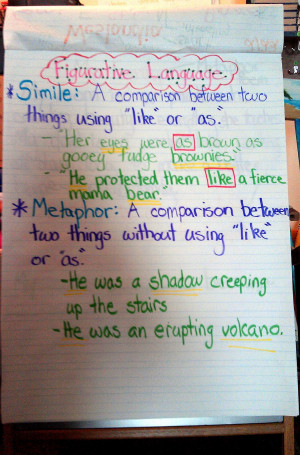 Westlandia
Figurative Language
*Simile: A comparison between two
things using "like" or "as."
- "Her eyes were as brown as
gooey fudge brownies."
- "He protected them like a fierce
mama bear."
*Metaphor: A comparison between
two things without using "like"
or "as."
-He was a shadow creeping
up the stairs
-He was an erupting volcano.